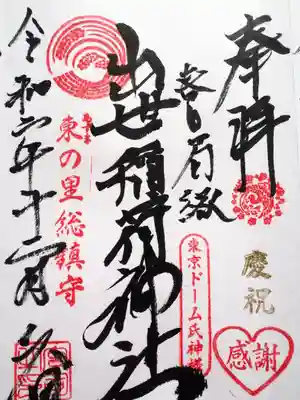 奉拝
慶祝
感謝
東京ドーム氏神様
出世稲荷神社
あずま
東の里総鎮守
令和六年十二月